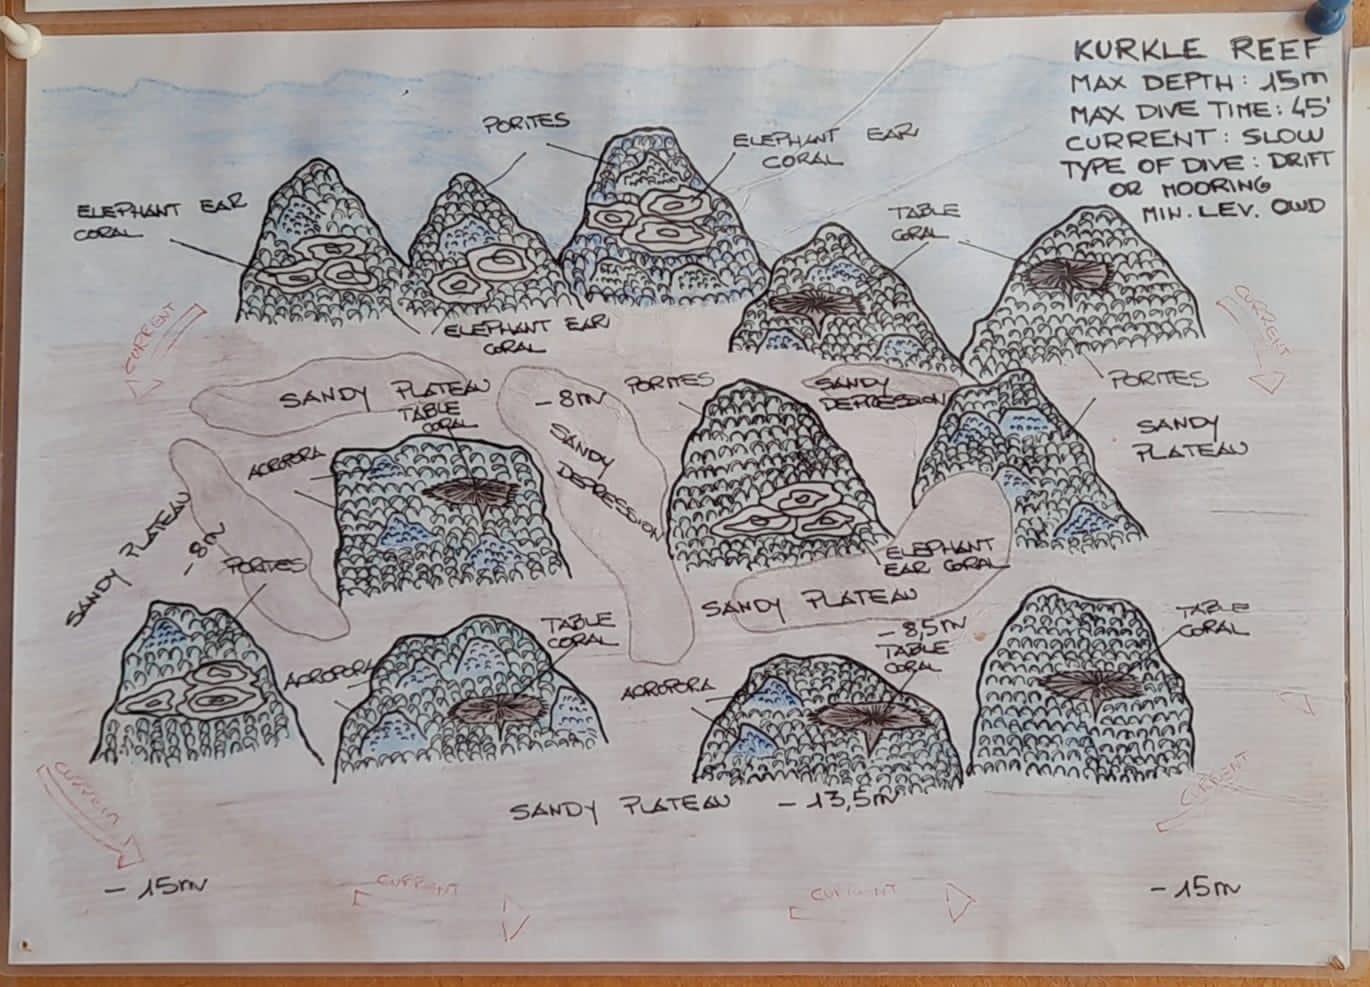 KURKLE REEF
MAX DEPTH: 15m
MAX DIVE TIME: 45'
CURRENT: SLOW
TYPE OF DIVE: DRIFT
OR MOORING
MIN. LEV. OWD
PORITES
ELEPHANT EAR
CORAL
ELEPHANT EAR
CORAL
TABLE
CORAL
ELEPHANT EAR
CORAL
CURRENT
CURRENT
SANDY PLATEAU
- 8m
PORITES
SANDY
DEPRESSION
PORITES
TABLE
CORAL
SANDY
DEPRESSION
SANDY
PLATEAU
ACROPORA
SANDY PLATEAU
- 8m
PORITES
ELEPHANT
EAR CORAL
SANDY PLATEAU
- 8,5m
TABLE
CORAL
TABLE
CORAL
TABLE
CORAL
ACROPORA
ACROPORA
SANDY PLATEAU - 13,5m
CURRENT
CURRENT
- 15m
CURRENT
CURRENT
- 15m